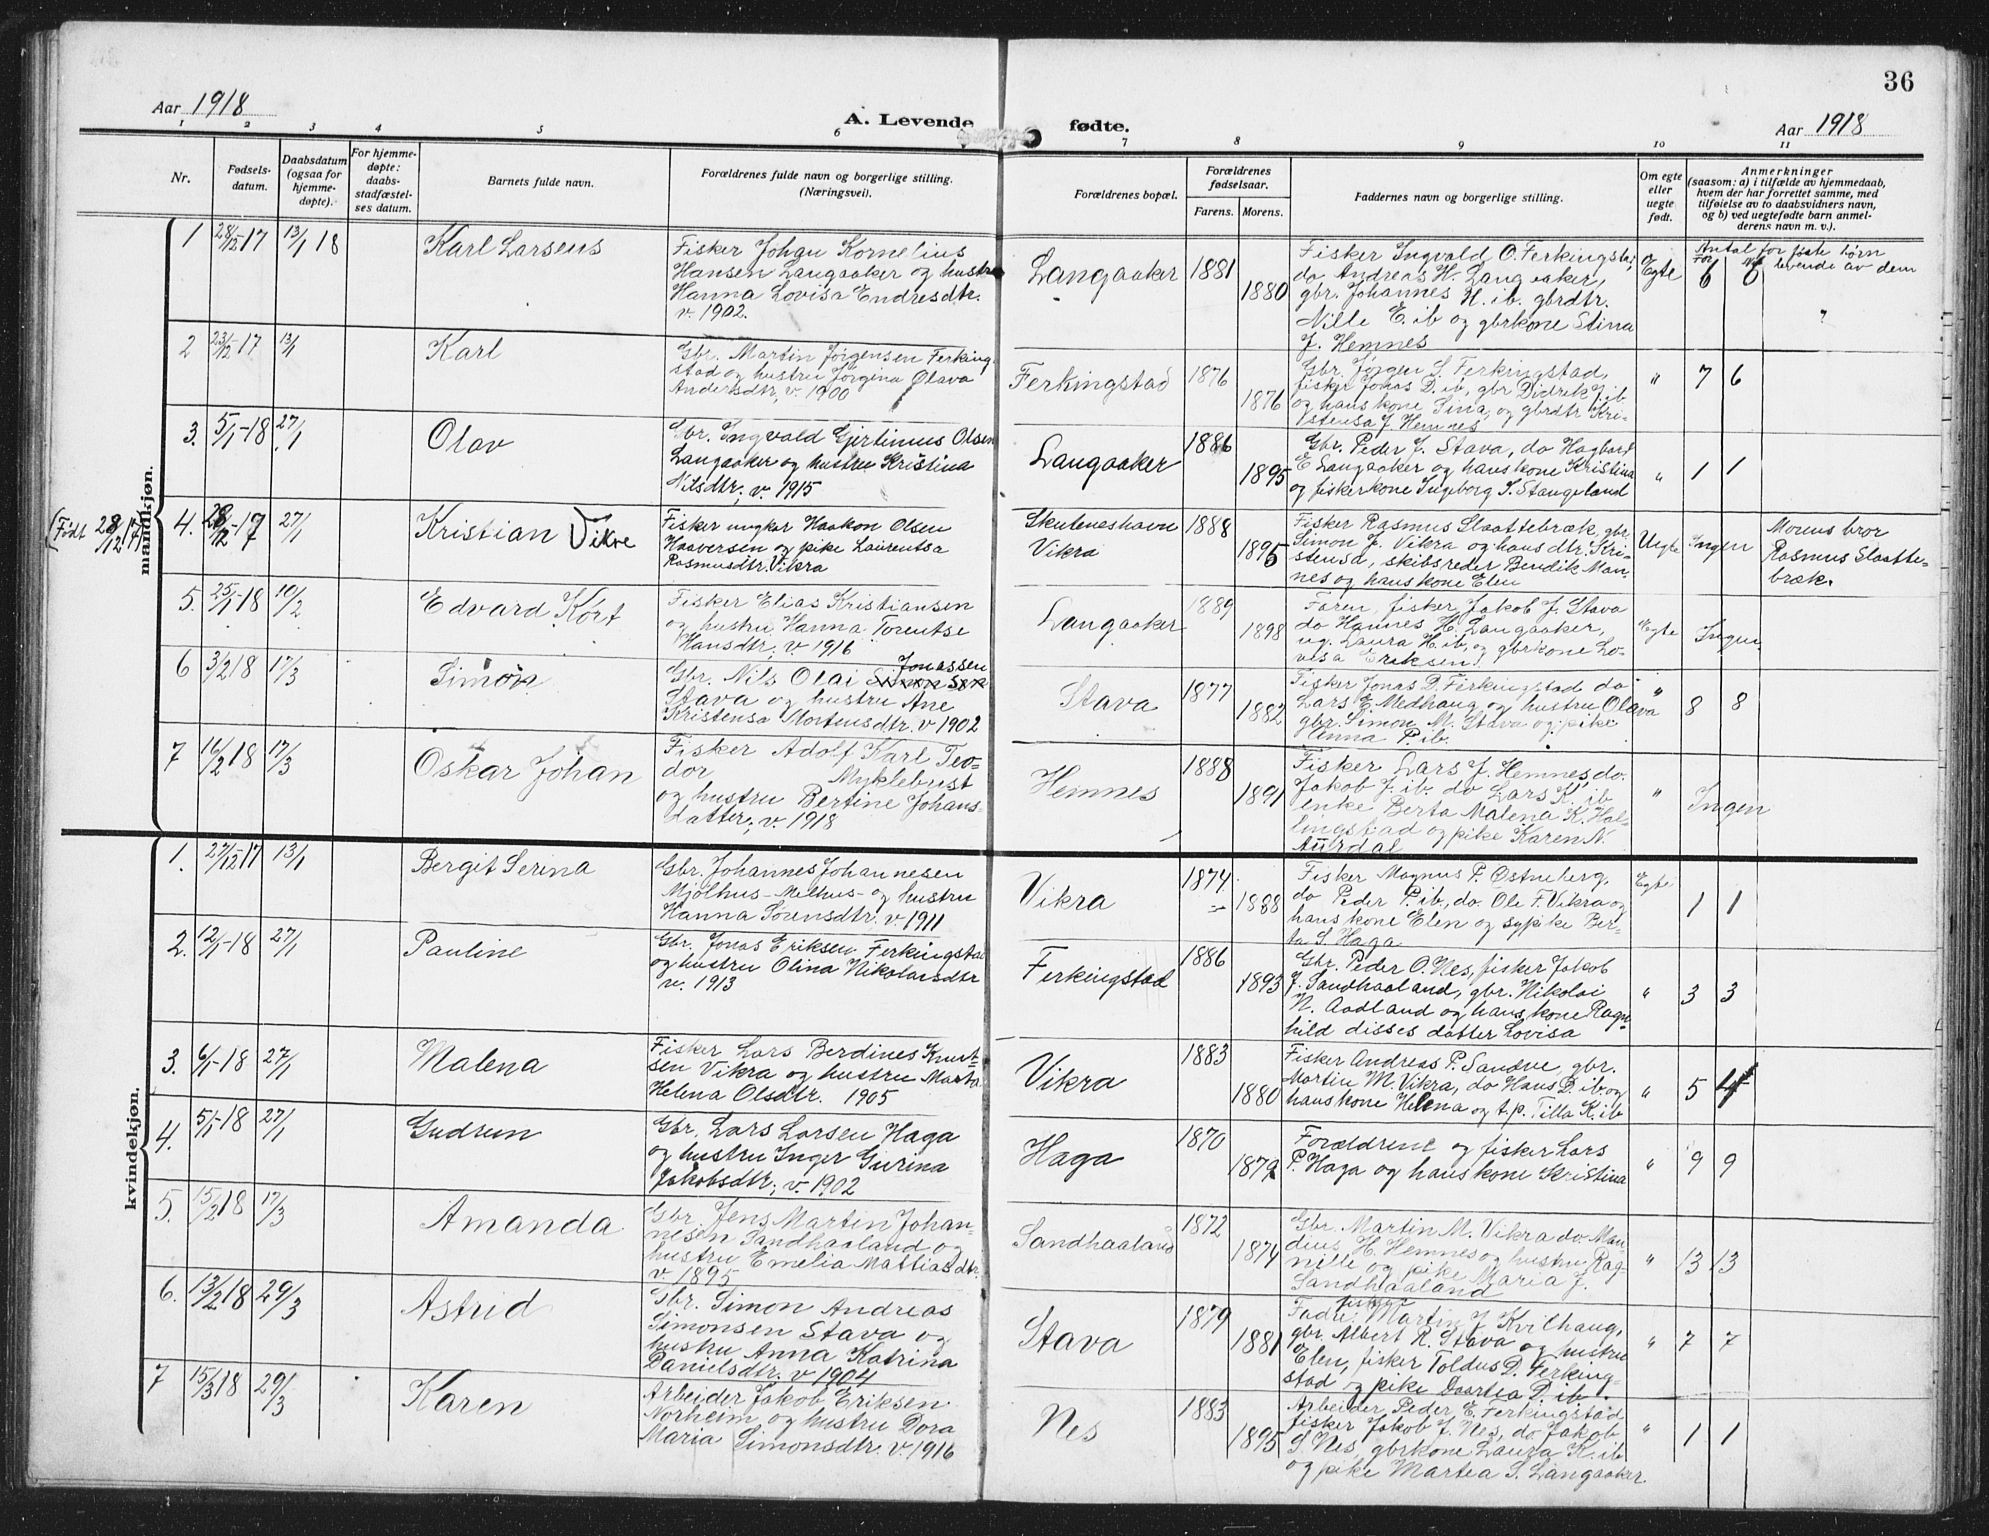 36
Aar 1918
A. Levende fødte.
Aar 1918
1 2 3 4 5 6 7 8 9 10 11
Nr.
Fødsels-
datum.
Daabsdatum
(ogsaa for
hjemme-
døpte).
For hjemme-
døpte:
daabs-
stadfæstel-
ses datum.
Barnets fulde navn.
Forældrenes fulde navn og borgerlige stilling.
(Næringsvei).
Forældrenes bopæl.
Forældrenes
fødselsaar.
Farens. Morens.
Faddernes navn og borgerlige stilling.
Om egte
eller
uegte
født.
Anmerkninger
(saasom: a) i tilfælde av hjemmedaab,
hvem der har forrettet samme, med
tilføielse av to daabsvidners navn,
og b) ved uegtefødte barn anmel-
derens navn m. v.).
Antal før føste børn
levende av dem
mandkjøn.
1 28/12-17 13/1 18 Karl Larsens
Fisker Johan Kornelius
Hansen Langaaker og hustru
Hanna Lovisa Endresdtr.
v. 1902.
Langaaker 1881 1880
Fisker Ingvald O. Ferkingstad,
do Andreas H. Langaaker,
gbr. Johannes H. ib. gbrdtr.
Nille E. ib og gbrkone Stina
J. Hemnes
Egte 6 6
2 23/12-17 13/1 Karl
Gbr. Martin Jørgensen Ferking-
stad og hustru Jørgina Olava
Andersdtr, v. 1900
Ferkingstad 1876 1876
Gbr. Jørgen S. Ferkingstad,
fisker Jonas D. ib, gbr Didrik J. ib
og hans kone Sina, og gbrdtr Kri-
stensa J. Hemnes
" 7 6
3. 5/1-18 27/1 Olav
Gbr. Ingvald Gjertinius Olsen
Langaaker og hustru Kristina
Nilsdtr, v. 1915
Langaaker 1886 1895
Gbr. Peder J. Stava, do Hagbart
E Langaaker og hans kone Kristina
og fiskerkone Ingeborg S. Stangeland
" 1 1
(Født 28/12 17)
4. 28/12-17 27/1 Kristian Vikre
Fisker ungkar Haakon Olsen
Haaversen og pike Laurentsa
Rasmusdtr. Vikra
Skuteneshavn
Vikra
1888 1895
Fisker Rasmus Slaattebræk, gbr.
Simon J. Vikra og hans dtr. Kri-
stensa, skibsreder Bendik Man-
nes og hans kone Elen
Uegte Ingen
Morens bror
Rasmus Slaatte-
bræk.
5. 25/1-18 10/2 Edvard Kørt
Fisker Elias Kristiansen
og hustru Hanna Torentse
Hansdtr, v 1916
Langaaker 1889 1898
Faren, fisker Jakob J. Stava
do Hannes H. Langaaker,
ug. Laura H. ib, og gbrkone Lo-
visa Eriksen.
Egte Ingen
6 3/2 18 17/3 Simon
Gbr. Nils Olai Jonassen
Stava og hustru Ane
Kristensa Mortensdtr. v 1902
Stava 1877 1882
Fisker Jonas D. Ferkingstad do
Lars E. Medhaug og hustru Olava
gbr. Simon M. Stava og pike
Anna P. ib.
" 8 8
7 16/2 18 17/3 Oskar Johan
Fisker Adolf Karl Teo-
dor Myklebust
og hustru Bertine Johans-
datter, v. 1918
Hemnes 1888 1891
Fisker Lars J. Hemnes do.
Jakob J. ib. do Lars K. ib
enke Berta Malena K. Hol-
lingstad og pike Karen N.
Aurdal
" Ingen
kvindekjøn.
1. 27/12 17 13/1 Bergit Serina
Gbr. Johannes Johannesen
Mjølhus-Melhus- og hustru
Hanna Sørensdtr. v. 1911
Vikra 1874 1888
Fisker Magnus P. Østneberg,
do Peder P. ib, do. Ole F. Vikra og
hans kone Elen og sypike Ber-
ta S. Haga
Egte 1 1
2. 12/1-18 27/1 Pauline
Gbr. Jonas Eriksen Ferkingstad
og hustru Olina Nikolaisdtr
v. 1913
Ferkingstad 1886 1893
Gbr. Peder O. Nes, fisker Jakob
J. Sandhaaland, gbr. Nikolai
N. Aadland og hans kone Ragn-
hild disses datter Lovisa
" 3 3
3. 6/1-18 27/1 Malena
Fisker Lars Berdines Knut-
sen Vikra og hustru Marta
Helena Olsdtr. 1905
Vikra 1883 1880
Fisker Andreas P. Sandve, gbr.
Martin M. Vikra, do Hans D. ib. og
hans kone Helena og t.p. Tilla K. ib
" 5 4
4. 5/1-18 27/1 Gudrun
Gbr. Lars Larsen Haga
og hustru Inger Gurina
Jakobsdtr, v. 1902
Haga 1870 1879
Forældrene og fisker Lars
P. Haga og hans kone Kristina
" 9 9
5. 15/2 18 17/3 Amanda
Gbr. Jens Martin Johan-
nesen Sandhaaland og
hustru Emelia Mattiasdtr.
v. 1895
Sandhaaland 1872 1874
Gbr. Martin M. Vikra do. Man-
dius H. Hemnes og hustru Rag-
nille og pike Maria J.
Sandhaaland
" 13 13
6. 13/2 18 29/3 Astrid
Gbr. Simon Andreas
Simonsen Stava og
hustru Anna Katrina
Danielsdtr. v 1904
Stava 1879 1881
fisker Martin J Kvilhaug,
gbr. Albert R. Stava og hustru
Elen, fisker Toldus D. Ferking-
stad og pike Daartea D. ib.
" 7 7
7 15/3 18 29/3 Karen
Arbeider Jakob Eriksen
Norheim og hustru Dora
Maria Simonsdtr. v. 1916
Nes 1883 1895
Arbeider Peder E. Ferkingstad
fisker Jakob J. Nes, do Jakob
S. Nes, gbrkone Laura K. ib
og pike Martea S. Langaaker.
" 1 1